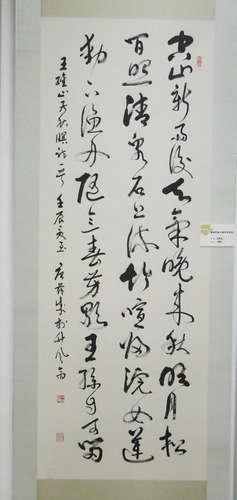 空山新雨後天氣晚來秋明月松
間照清泉石上流竹喧歸浣女蓮
動下漁舟隨意春芳歇王孫自可留
王維山居秋暝詩一首 壬辰